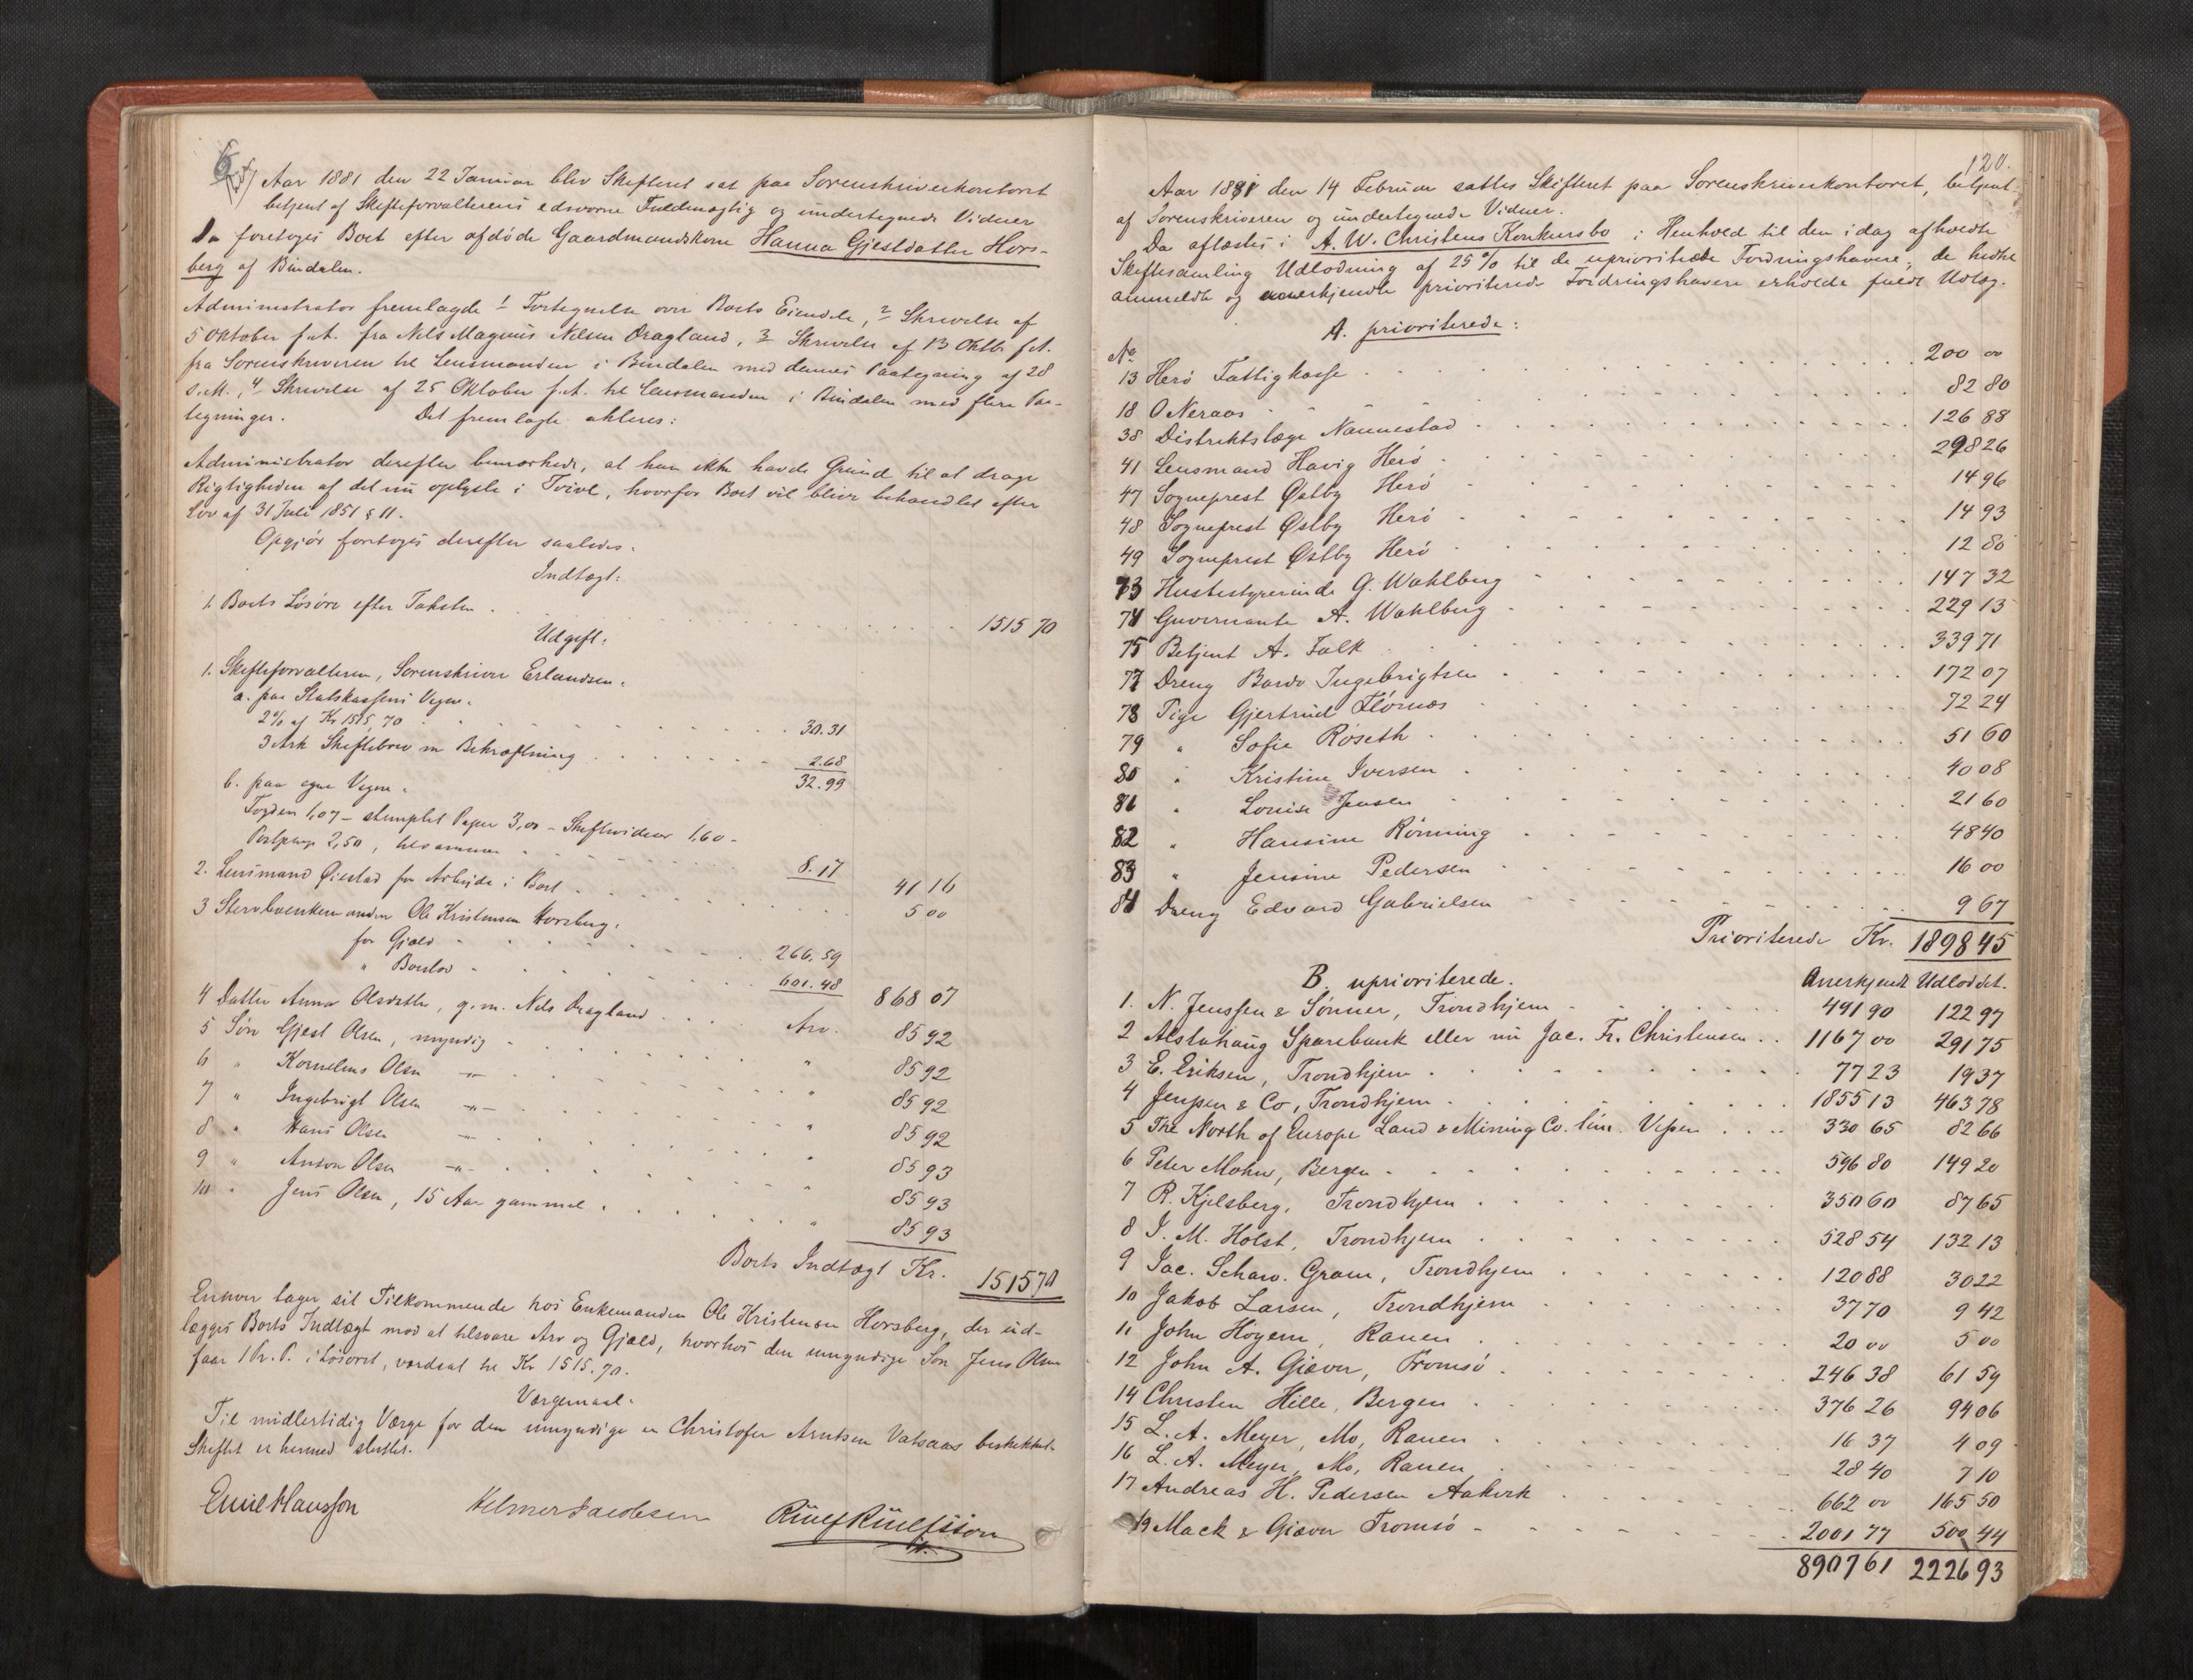 Aar 1881 den 22 Januar blev Skifteret sat paa Sorenskriverkontoret
betjent af Skifteforvalterens edsvorne Fuldmægtig og undertegnede Vidner
Da foretoges Boet efter afdøde Gaardmandskone Hanna Gjestdatter Hors-
berg af Bindalen.
Administrator fremlagde 1 Fortegnelse over Boets Eiendele, 2 Skrivelse af
5 Oktober f.A. fra Nils Magnus Nilsen Øragland, 3 Skrivelse af 13 Oktbr f.A.
fra Sorenskriveren til Lensmanden i Bindalen med dennes Paategning af 28
s.M., 4 Skrivelse af 25 Oktober f.A. til Lensmanden i Bindalen med flere Paa-
tegninger. Det fremlagte akteres:
Administrator derefter bemærkede, at han ikke havde Grund til at drage
Rigtigheden af det nu oplyste i Tvivl, hvorfor Boet vil blive behandlet efter
Lov af 31 Juli 1851 § 11.
Opgjør foretoges derefter saaledes:
Indtægt:
1. Boets Løsøre efter Taksten . 1515 70
Udgift:
1. Skifteforvalteren, Sorenskriver Erlandsen:
a. paa Statskassens Vegne:
2% af Kr 1515,70 30.31
3 Ark Skiftebrev m Bekræftning 2.68
32.99
b. paa egne Vegne:
Fogden 1,07 - stemplet Papir 3,00 - Skiftevidner 1,60 -
Postpenge 2,50, tilsammen 8.17
41 16
2. Lensmand Øiestad for Arbeide i Boet 5 00
3 Stervboenkemanden Ole Kristensen Horsberg:
for Gjæld 266.59
" Boeslod 601.48
868 07
4 Datter Anna Olsdatter, g.m. Nils Øragland Arv. 85 92
5 Søn Gjest Olsen, myndig " 85 92
6 " Kornelius Olsen -"- " 85 92
7 " Ingebrigt Olsen -"- " 85 92
8 " Hans Olsen -"- " 85 93
9 " Anton Olsen -"- " 85 93
10 " Jens Olsen, 15 Aar gammel " 85 93
Boets Indtægt Kr. 1515 70
Enhver tager sit Tilkommende hos Enkemanden Ole Kristensen Horsberg, der ud-
lægges Boets Indtægt mod at tilsvare Arv og Gjæld, hvorhos den umyndige Søn Jens Olsen
faar 1 Pr. P. i Løsøret, værdsat til Kr 1515.70.
Værgemaal:
Til midlertidig Værge for den umyndige er Christofer Arntsen Vatsaas beskikket.
Skiftet er hermed sluttet.
Emil Hansson Helmer Jacobsen
120.
Aar 1881 den 14 Februar sattes Skifteret paa Sorenskriverkontoret, betjent
af Sorenskriveren og undertegnede Vidner.
Da aflæstes i A. W. Christens Konkursbo i Henhold til den idag afholdte
Skiftesamling Udlodning af 25% til de uprioriterede Fordringshavere, de hidtil
anmeldte og anerkjendte prioriterede Fordringshavere erholde fuldt Udlæg.
A. prioriterede:
No
13 Herø Fattigkasse 200 00
18 O Neraas 82 80
38 Distriktslæge Nannestad 126 88
41 Lensmand Havig Herø 298 26
47 Sogneprest Østby Herø 14 96
48 Sogneprest Østby Herø 14 93
49 Sogneprest Østby Herø 12 80
73 Husbestyrerinde G. Wahlberg 147 32
74 Guvernante A. Wahlberg 229 13
75 Betjent A. Falk 339 71
77 Dreng Bardo Ingebrigtsen 172 07
78 Pige Gjertrud Flørnæs 72 24
79 " Sofie Røseth 51 60
80 " Kristine Iversen 40 08
81 " Louise Jensen 21 60
82 " Hansine Rønning 48 40
83 " Jensine Pedersen 16 00
84 Dreng Edvard Gabrielsen 9 67
Prioriterede Kr. 1898 45
B. uprioriterede. Anerkjendt Udloddet.
1. N. Jenssen & Sønner, Trondhjem 491 90 122 97
2 Alstahaug Sparebank eller nu Jac. Fr. Christensen 1167 00 291 75
3 E. Eriksen, Trondhjem 77 23 19 37
4 Jenssen & Co, Trondhjem 1855 13 463 78
5 The North of Europe Land & Mining Co. lim. Vefsen 330 65 82 66
6 Peter Mohn, Bergen 596 80 149 20
7 R. Kjelsberg, Trondhjem 350 60 87 65
8 I. M. Holst, Trondhjem 528 54 132 13
9 Jac. Schavl. Gram, Trondhjem 120 88 30 22
10 Jakob Larsen, Trondhjem 37 70 9 42
11 John Høyem, Ranen 20 00 5 00
12 John A. Giæver, Tromsø 246 38 61 59
14 Christen Hille, Bergen 376 26 94 06
15 L. A. Meyer, Mo, Ranen 16 37 4 09
16 L. A. Meyer, Mo, Ranen 28 40 7 10
17 Andreas H. Pedersen Aakvik 662 00 165 50
19 Mack & Giæver Tromsø 2001 77 500 44
8907 61 2226 93